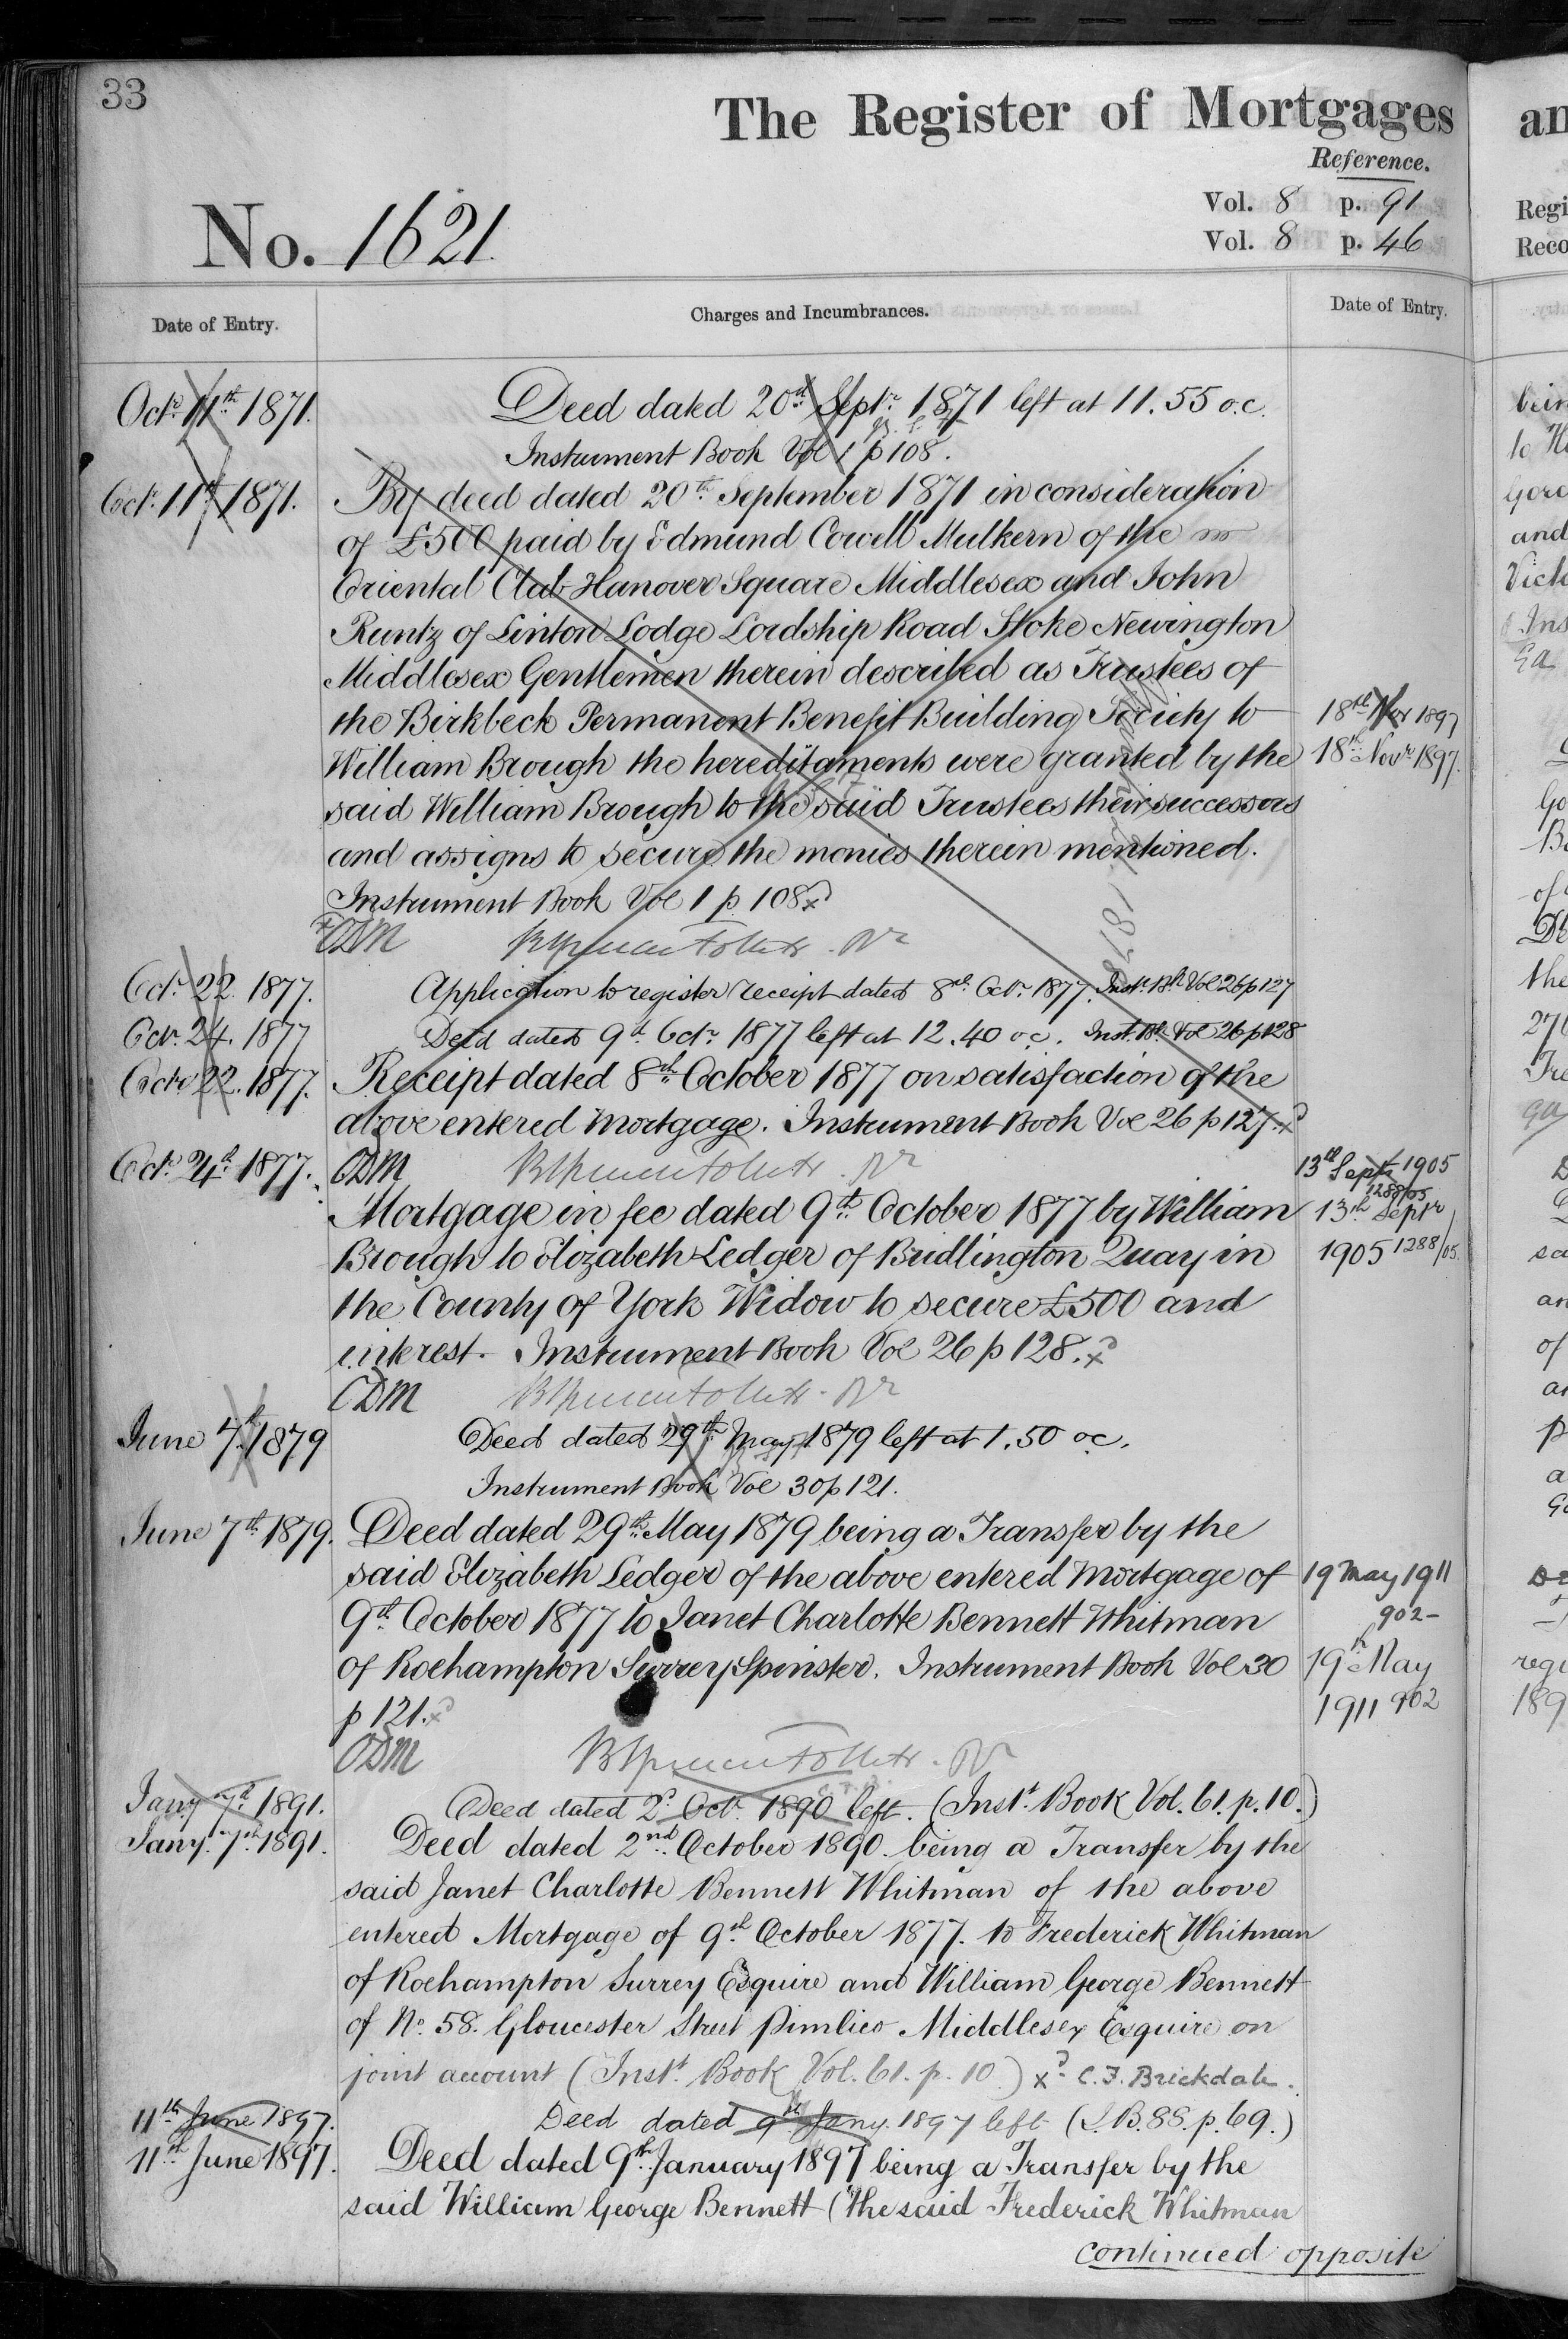 33
The Register of Mortgages
Reference.
No. 1621
Vol. 8 p. 91
Vol. 8 p. 46
Date of Entry.
Charges and Incumbrances.
Date of Entry.
Octr. 11th 1871.
Deed dated 20th Septr. 1871 left at 11.55 o.c.
Instrument Book Vol 1 p 108.
Octr. 11th 1871.
By deed dated 20th September 1871 in consideration
of £500 paid by Edmund Cowell Mulkern of the
Oriental Club Hanover Square Middlesex and John
Runtz of Linton Lodge Lordship Road Stoke Newington
Middlesex Gentlemen therein described as Trustees of
the Birkbeck Permanent Benefit Building Society to
William Brough the hereditaments were granted by the
said William Brough to the said Trustees their successors
and assigns to secure the monies therein mentioned.
Instrument Book Vol 1 p 108
ODM
Octr. 22. 1877.
Application to register receipt dated 8th Octr. 1877. Inst. Bk. Vol 26 p 127
Octr. 24. 1877
Deed dated 9th Octr. 1877 left at 12.40 o.c. Inst. Bk. Vol 26 p 128
Octr. 22. 1877.
Receipt dated 8th October 1877 on satisfaction of the
above entered Mortgage. Instrument Book Vol 26 p 127
Octr. 24th 1877.
ODM
Mortgage in fee dated 9th October 1877 by William
Brough to Elizabeth Ledger of Bridlington Quay in
the County of York Widow to secure £500 and
interest. Instrument Book Vol 26 p 128.
ODM
June 7th 1879
Deed dated 29th May 1879 left at 1.50 o.c.
Instrument Book Vol 30 p 121.
June 7th 1879.
Deed dated 29th May 1879 being a Transfer by the
said Elizabeth Ledger of the above entered Mortgage of
9th October 1877 to Janet Charlotte Bennett Whitman
of Roehampton Surrey Spinster. Instrument Book Vol 30
p 121.
ODM
Jany. 7th 1891.
Deed dated 2d Octr. 1890 left. (Inst. Book Vol. 61. p. 10.)
Jany. 7th 1891.
Deed dated 2nd October 1890. being a Transfer by the
said Janet Charlotte Bennett Whitman of the above
entered Mortgage of 9th October 1877. to Frederick Whitman
of Roehampton Surrey Esquire and William George Bennett
of No. 58. Gloucester Street Pimlico Middlesex Esquire on
joint account (Inst. Book Vol. 61. p. 10.) C. F. Brickdale.
11th June 1897.
Deed dated 9th Jany. 1897 left (I.B. 88. p. 69.)
11th June 1897.
Deed dated 9th January 1897 being a Transfer by the
said William George Bennett (the said Frederick Whitman
continued opposite
18th Nov 1897
18th Novr 1897.
13th Septr 1905
1288/05
13th Septr
1905 1288/05.
19 May 1911
902-
19th May
1911 902
an
Regi
Reco